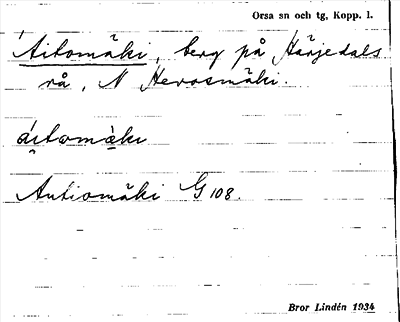 Orsa sn och tg, Kopp. l.
Aitomäki, berg på Härjedals
rå, N Hevosmäki.
áitomä̀ki
Autiomäki G 108.
Bror Lindén 1934